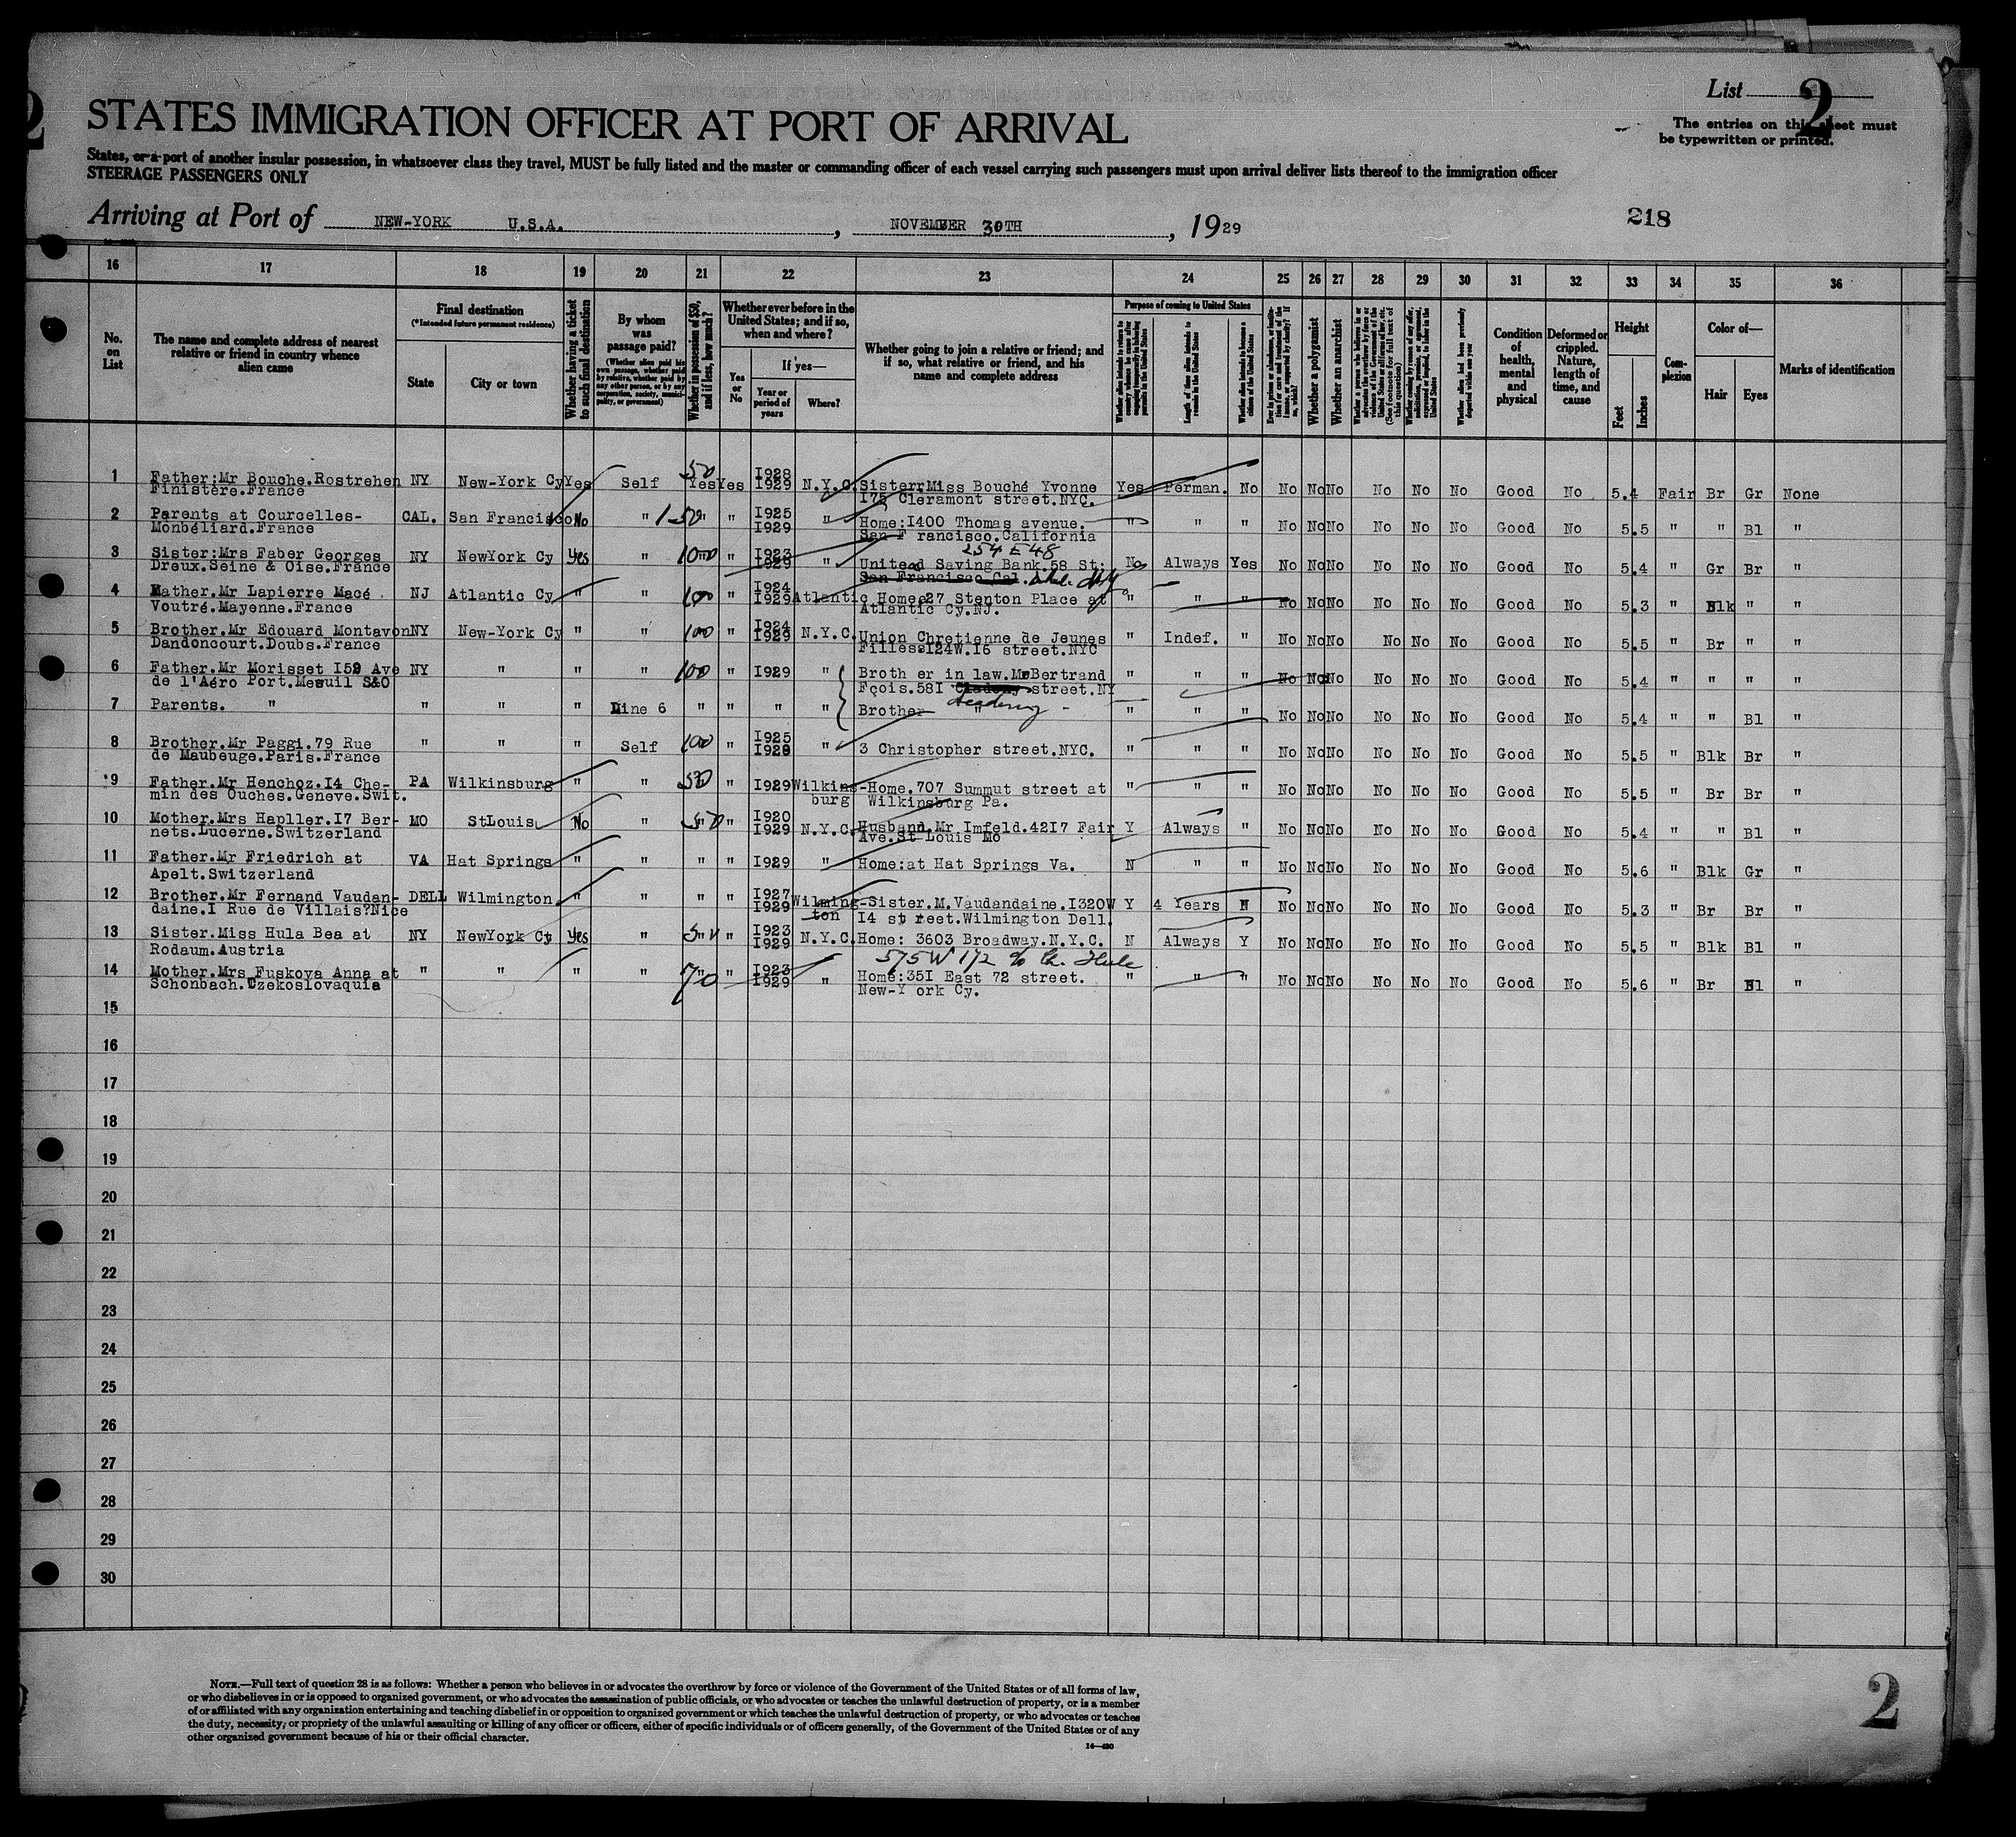 List 2
2
STATES IMMIGRATION OFFICER AT PORT OF ARRIVAL
The entries on this sheet must
be typewritten or printed.
States, or a port of another insular possession, in whatsoever class they travel, MUST be fully listed and the master or commanding officer of each vessel carrying such passengers must upon arrival deliver lists thereof to the immigration officer
STEERAGE PASSENGERS ONLY
Arriving at Port of NEW-YORK U.S.A. , NOVEMBER 30TH , 1929
218
16 17 18 19 20 21 22 23 24 25 26 27 28 29 30 31 32 33 34 35 36
No. on List
The name and complete address of nearest relative or friend in country whence alien came
Final destination
(*Intended future permanent residence)
State
City or town
Whether having a ticket to such final destination
By whom was passage paid?
(Whether alien paid his own passage, whether paid by relative, whether paid by any other person, or by any corporation, society, municipality, or government)
Whether in possession of $50, and if less, how much?
Whether ever before in the United States; and if so, when and where?
Yes or No
If yes—
Year or period of years
Where?
Whether going to join a relative or friend; and if so, what relative or friend, and his name and complete address
Purpose of coming to United States
Length of time alien intends to remain in the United States
Whether alien intends to become a citizen of the United States
Whether a polygamist
Whether an anarchist
Whether alien had been previously deported within one year
Condition of health, mental and physical
Deformed or crippled. Nature, length of time, and cause
Height
Feet
Inches
Complexion
Color of—
Hair
Eyes
Marks of identification
1 Father:Mr Bouche.Rostrehen NY New-York Cy Yes Self 50 Yes Yes I928 N.Y.C. Sisterr Miss Bouché Yvonne Yes Perman. No No No No No No No Good No 5.4 Fair Br Gr None
Finistère.France I929 I75 Cleramont street.NYC.
2 Parents at Courcelles- CAL. San Francisco No " 150 " I925 " Home:I400 Thomas avenue. " " " No No No No No No Good No 5.5 " " Bl "
Monbéliard.France I929 San F rancisco.California
3 Sister:Mrs Faber Georges NY NewYork Cy Yes " 1000 " I923 " 254 E 48
Dreux.Seine & Oise.France I929 United Saving Bank.58 St: No Always Yes No No No No No No Good No 5.4 " Gr Br "
San Francisco Cal.
4 Mather.Mr Lapierre Macé NJ Atlantic Cy " " 100 " I924 Atlantic Home 27 Stenton Place at " " " No No No No No No Good No 5.3 " Blk " "
Voutré.Mayenne.France I929 Atlantic Cy.NJ.
5 Brother.Mr Edouard Montavon NY New-York Cy " " 100 " I924 N.Y.C. Union Chretienne de Jeunes " Indef. " No No No No No No Good No 5.5 " Br " "
Dandoncourt.Doubs.France I929 FillessI24W.I6 street.NYC
6 Father.Mr Morisset I59 Ave NY " " " 100 " I929 " Broth er in law.Mr Bertrand " " " No No No No No No Good No 5.4 " " " "
de l'Aéro Port.Mesuil S&O Fçois.58I Academy street.NY
7 Parents. " " " " Line 6 " " " " Brother " - " " " No No No No No No Good No 5.4 " " Bl "
8 Brother.Mr Paggi.79 Rue " " " Self 100 " I925 " 3 Christopher street.NYC. " " " No No No No No No Good No 5.5 " Blk Br "
de Maubeuge.Paris.France I929
9 Father.Mr Henchoz.I4 Che- PA Wilkinsburg " " 50 " I929 Wilkins-Home.707 Summut street at " " " No No No No No No Good No 5.5 " Br Br "
min des Ouches.Geneve.Swit. burg Wilkinsburg Pa.
10 Mother.Mrs Hapller.I7 Ber- MO StLouis No " 50 " I920 N.Y.C. Husband.Mr Imfeld.42I7 Fair Y Always " No No No No No No Good No 5.4 " " Bl "
nets.Lucerne.Switzerland I929 Ave.St Louis Mo
11 Father.Mr Friedrich at VA Hat Springs " " " " I929 " Home:at Hat Springs Va. N " " No No No No No No Good No 5.6 " Blk Gr "
Apelt.Switzerland
12 Brother.Mr Fernand Vaudan- DELL Wilmington " " " " I927 Wilming-Sister.M.Vaudandaine.I320W Y 4 Years N No No No No No No Good No 5.3 " Br Br "
daine.I Rue de Villais?Nice I929 ton I4 st reet.Wilmington Dell.
13 Sister.Miss Hula Bea at NY NewYork Ct Yes " " I923 N.Y.C. Home: 3603 Broadway.N.Y.C. N Always Y No No No No No No Good No 5.5 " Blk Bl "
Rodaum.Austria I929 575 W 172 % Hula
14 Mother.Mrs Fuskova Anna at " " " " 70 " I923 " Home:35I East 72 street. " " " No No No No No No Good No 5.6 " Br Bl "
Schonbach.Czekoslovaquia I929 New-Y ork Cy.
15
16
17
18
19
20
21
22
23
24
25
26
27
28
29
30
NOTE.—Full text of question 28 is as follows: Whether a person who believes in or advocates the overthrow by force or violence of the Government of the United States or of all forms of law,
or who disbelieves in or is opposed to organized government, or who advocates the assassination of public officials, or who advocates or teaches the unlawful destruction of property, or is a member
of or affiliated with any organization entertaining and teaching disbelief in or opposition to organized government or which teaches the unlawful destruction of property, or who advocates or teaches
the duty, necessity, or propriety of the unlawful assaulting or killing of any officer or officers, either of specific individuals or of officers generally, of the Government of the United States or of any
other organized government because of his or their official character.
14—430
2